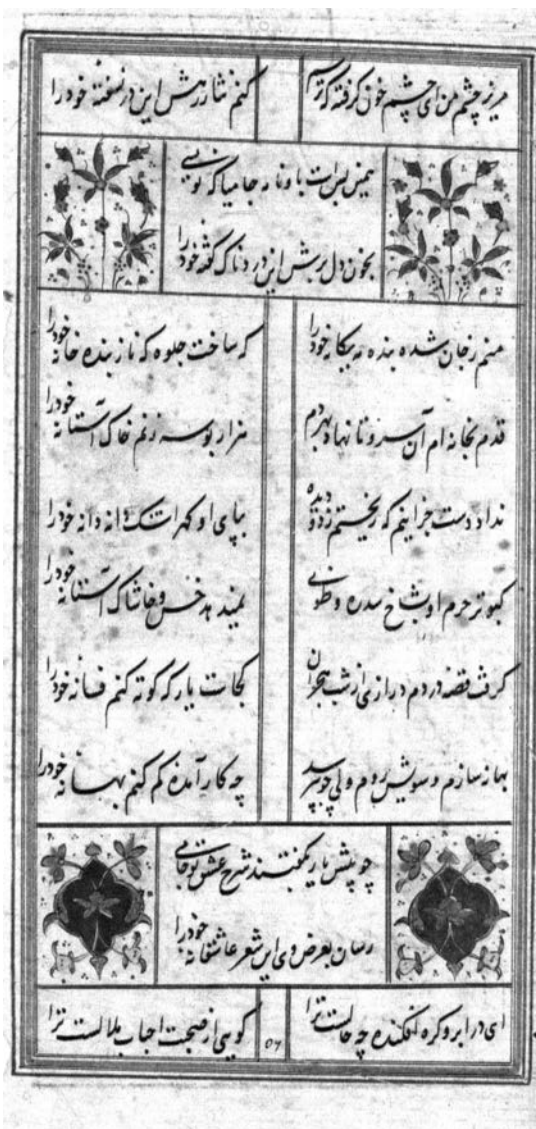 مریز چشم من ای چشم خون گرفته که ترسم
کنم نثار رهش این در نسفته خود را
همین بس است
بخون دل این دردناک گفته خود را
منم ز جان شده بنده نه یکانه خود را
که ساخت جلوه که ناز بنده خانه خود را
قدم بخانه ام آن سرو نا نهاد بمردم
هزار بوسه زنم خاک آستانه خود را
نداد دست جز اینم که ریختم ز دو دیده
بپای او کهر اشک دانه دانه خود را
کبوتر حرم او بشاخ سدره و طوبی
نمیدهد خس و خاشاک آستانه خود را
کرفت قصه دردم درازی از شب هجران
کجاست یار که کوته کنم فسانه خود را
بهانه سازم و سویش روم ولی چو بپرسد
چه کار آمده کم کنم بهانه خود را
چو پیش یار شرح عشق تو
رسان بعرض وی این شعر عاشقانه خود را
ای در ابرو کره افکنده چه حالست ترا
کویی از صحبت احباب ملالست ترا